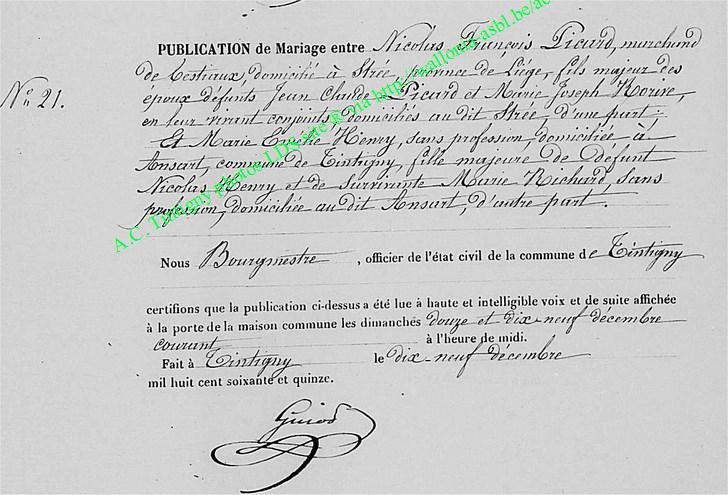 PUBLICATION de Mariage entre Nicolas François Picard, marchand
N° 21.
de bestiaux, domicilié à Strée, province de Liège, fils majeur des
époux défunts Jean Claude Picard et Marie Joseph
en leur vivant conjoints, domiciliés au dit Strée, d'une part;
Et Marie Henry, sans profession, domiciliée à
Ansart, commune de Tintigny, fille majeure de Défunt
Nicolas Henry et de survivante Marie Richard, sans
profession, domiciliée au dit Ansart, d'autre part.
Nous Bourgmestre, officier de l'état civil de la commune de Tintigny
certifions que la publication ci-dessus a été lue à haute et intelligible voix et de suite affichée
à la porte de la maison commune les dimanches douze et dix-neuf décembre
courant à l'heure de midi.
Fait à Tintigny le dix-neuf décembre
mil huit cent soixante et quinze.
A.C. Tintigny photos LDS site http://wallonia-asbl.be/ac